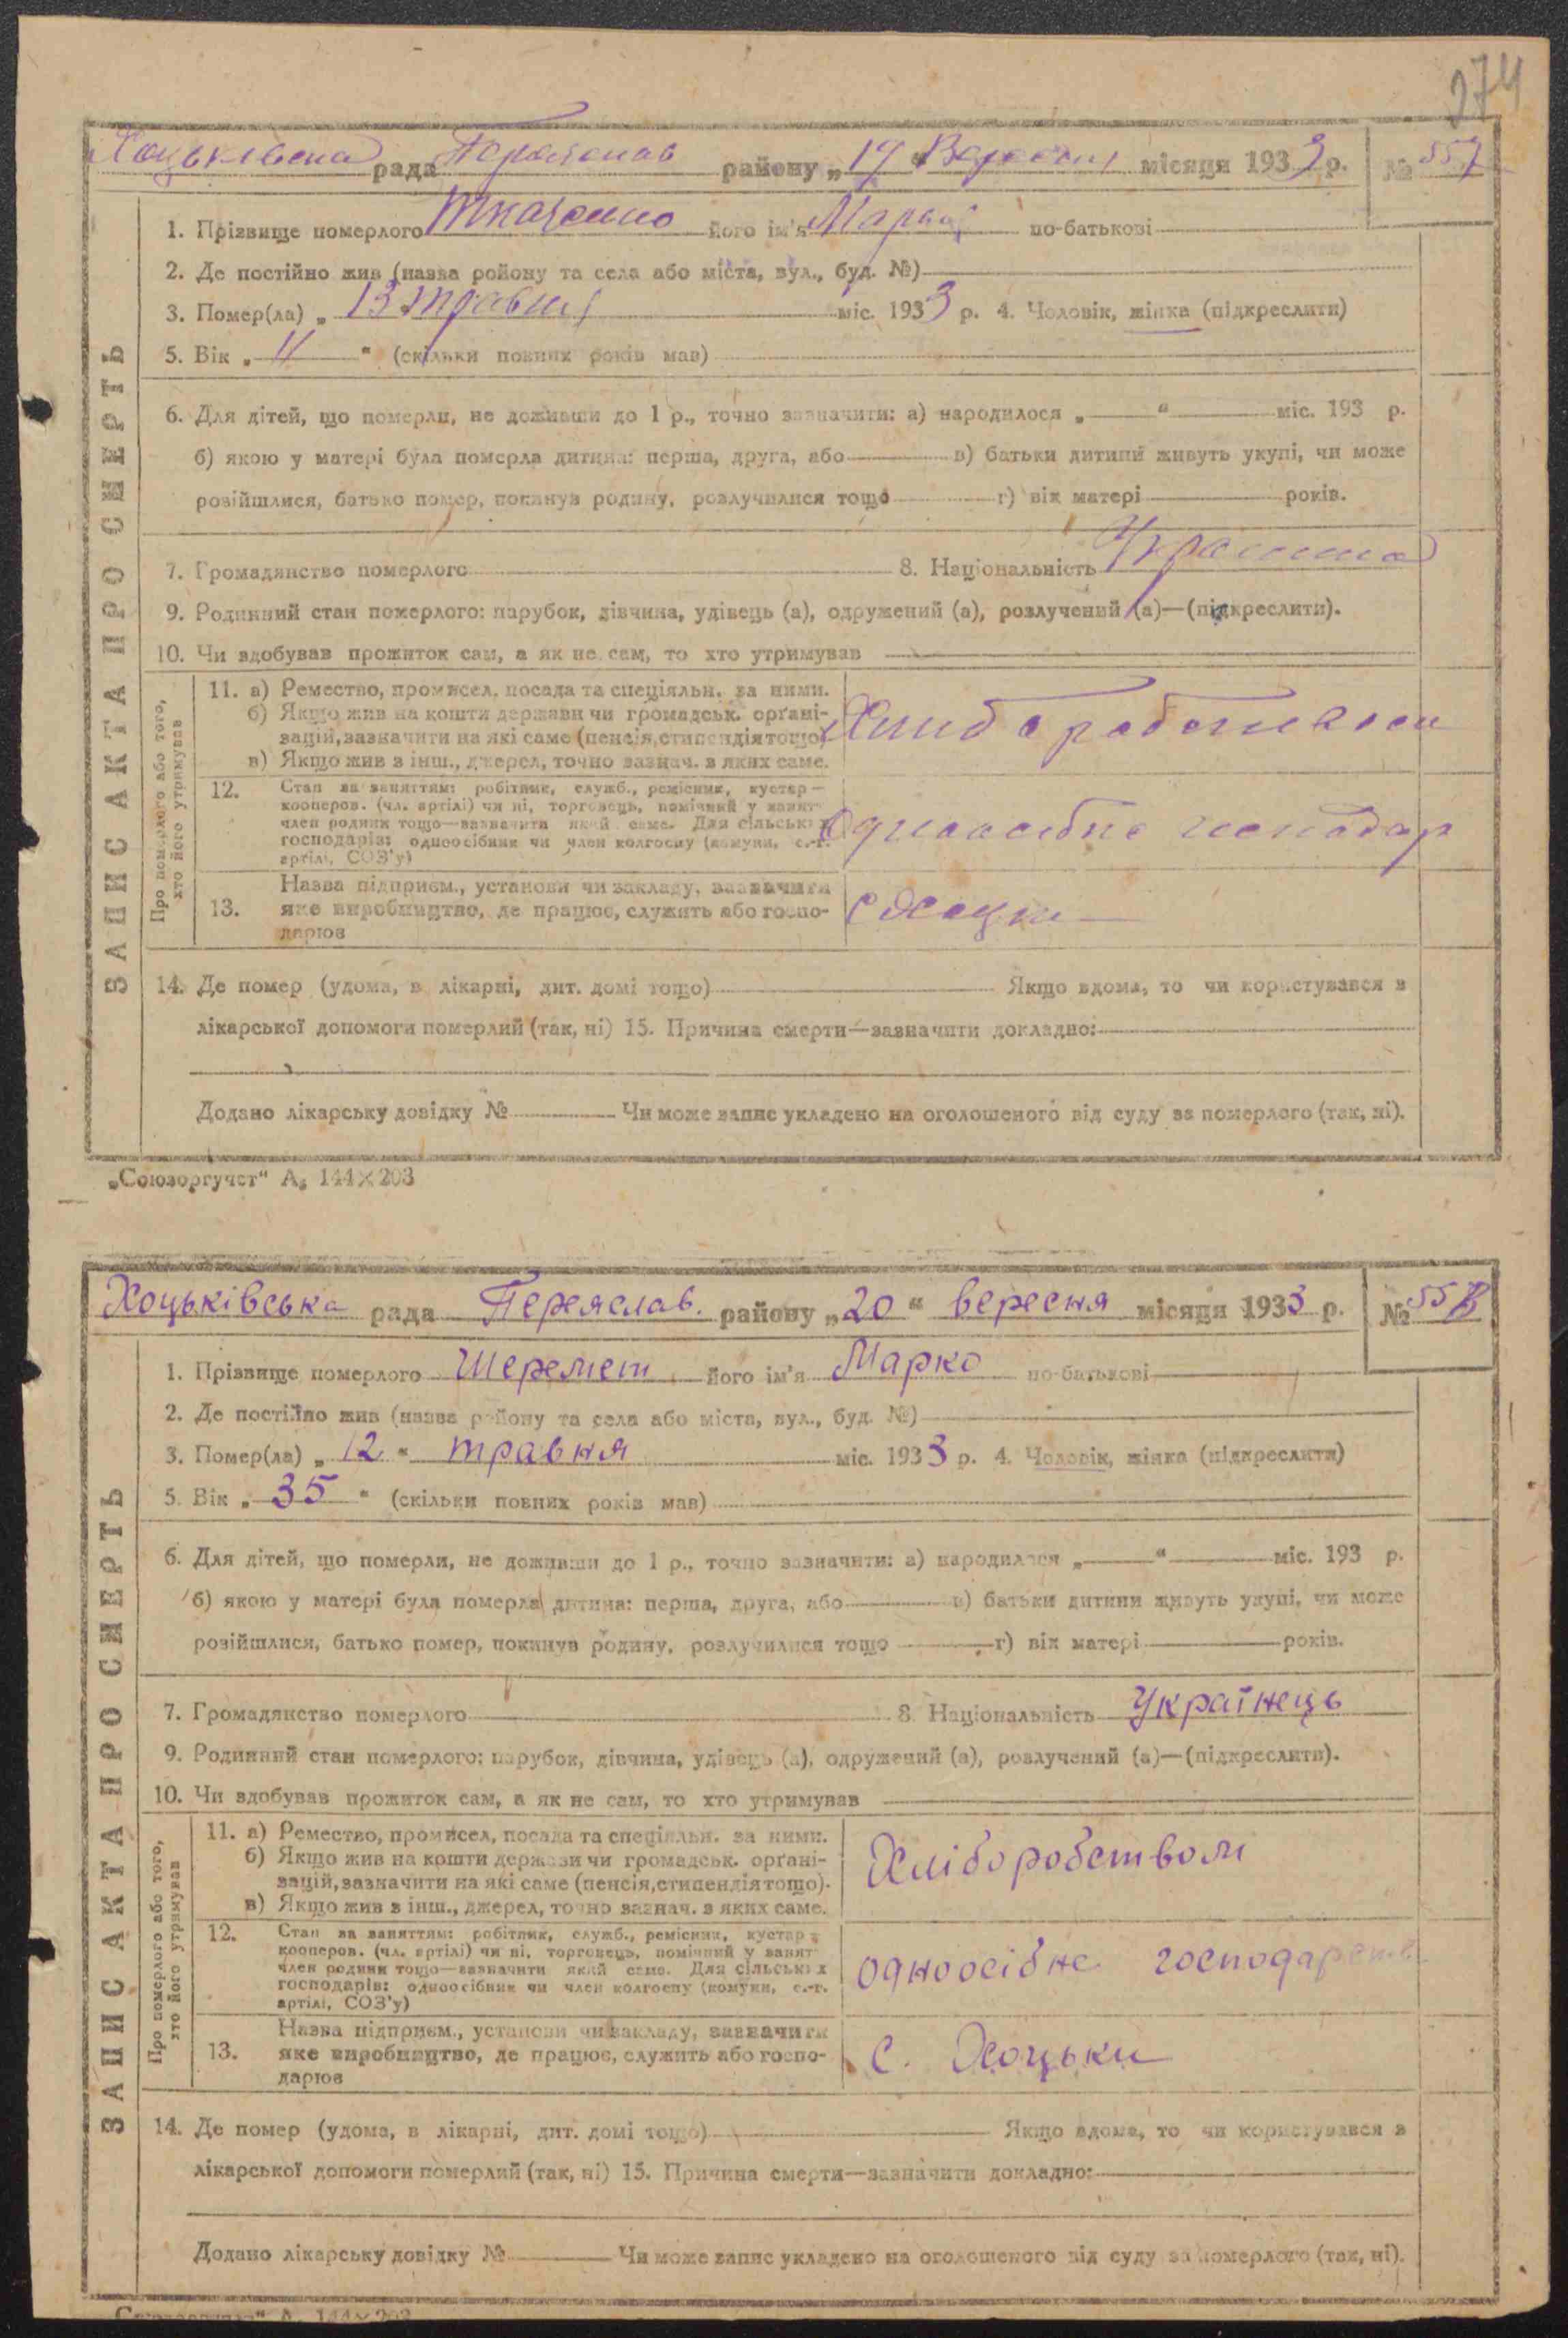 274
Хоцьківська рада Переяслав району „19“ Вересня місяця 1933 р. № 557
1. Прізвище померлого Ткаченко його ім'я Марія по-батькові
2. Де постійно жив (назва району та села або міста, вул., буд. №)
3. Помер(ла) „ 13 травня міс. 1933 р. 4. Чоловік, жінка (підкреслити)
5. Вік „ “ (скільки повних років мав)
6. Для дітей, що померли, не доживши до 1 р., точно зазначити: а) народилося „ “ міс. 193 р.
б) якою у матері була померла дитина: перша, друга, або в) батьки дитини живуть укупі, чи може
розійшлися, батько помер, покинув родину, розлучилися тощо г) вік матері років.
7. Громадянство померлого 8. Національність
9. Родинний стан померлого: парубок, дівчина, удівець (а), одружений (а), розлучений (а)—(підкреслити).
10. Чи здобував прожиток сам, а як не сам, то хто утримував
ЗАПИС АКТА ПРО СМЕРТЬ
Про померлого або того, хто його утримував
11. а) Ремество, промисел, посада та спеціяльн. за ними.
б) Якщо жив на кошти держави чи громадськ. орґані-
зацій, зазначити на які саме (пенсія, стипендія тощо)
в) Якщо жив з інш., джерел, точно зазнач. з яких саме.
12. Стан за заняттям: робітник, служб., ремісник, кустар—
кооперов. (чл. артілі) чи ні, торговець, помічний у занят
член родини тощо—зазначити який саме. Для сільських
господарів: одноосібник чи член колгоспу (комуни, с.-г.
артілі, СОЗ'у)
13. Назва підприєм., установи чи закладу, зазначити
яке виробництво, де працює, служить або госпо-
дарює
с Хоцьки
14. Де помер (удома, в лікарні, дит. домі тощо) Якщо вдома, то чи користувався з
лікарської допомоги померлий (так, ні) 15. Причина смерти—зазначити докладно:
Додано лікарську довідку № Чи може запис укладено на оголошеного від суду за померлого (так, ні).
„Союзоргучет“ А₅ 144×203
Хоцьківська рада Переяслав. району „20“ вересня місяця 1933 р. № 558
1. Прізвище померлого Шеремет його ім'я Марко по-батькові
2. Де постійно жив (назва району та села або міста, вул., буд. №)
3. Помер(ла) „ 12 “ травня міс. 1933 р. 4. Чоловік, жінка (підкреслити)
5. Вік „ 35 “ (скільки повних років мав)
6. Для дітей, що померли, не доживши до 1 р., точно зазначити: а) народилося „ “ міс. 193 р.
б) якою у матері була померла дитина: перша, друга, або в) батьки дитини живуть укупі, чи може
розійшлися, батько помер, покинув родину, розлучилися тощо г) вік матері років.
7. Громадянство померлого 8. Національність Українець
9. Родинний стан померлого: парубок, дівчина, удівець (а), одружений (а), розлучений (а)—(підкреслити).
10. Чи здобував прожиток сам, а як не сам, то хто утримував
ЗАПИС АКТА ПРО СМЕРТЬ
Про померлого або того, хто його утримував
11. а) Ремество, промисел, посада та спеціяльн. за ними.
б) Якщо жив на кошти держави чи громадськ. орґані-
зацій, зазначити на які саме (пенсія, стипендія тощо).
в) Якщо жив з інш., джерел, точно зазнач. з яких саме.
Хліборобством
12. Стан за заняттям: робітник, служб., ремісник, кустар
кооперов. (чл. артілі) чи ні, торговець, помічний у занят
член родини тощо—зазначити який саме. Для сільських
господарів: одноосібник чи член колгоспу (комуни, с.-г.
артілі, СОЗ'у)
одноосібне господарств
13. Назва підприєм., установи чи закладу, зазначити
яке виробництво, де працює, служить або госпо-
дарює
с. Хоцьки
14. Де помер (удома, в лікарні, дит. домі тощо) Якщо вдома, то чи користувався з
лікарської допомоги померлий (так, ні) 15. Причина смерти—зазначити докладно:
Додано лікарську довідку № Чи може запис укладено на оголошеного від суду за померлого (так, ні).